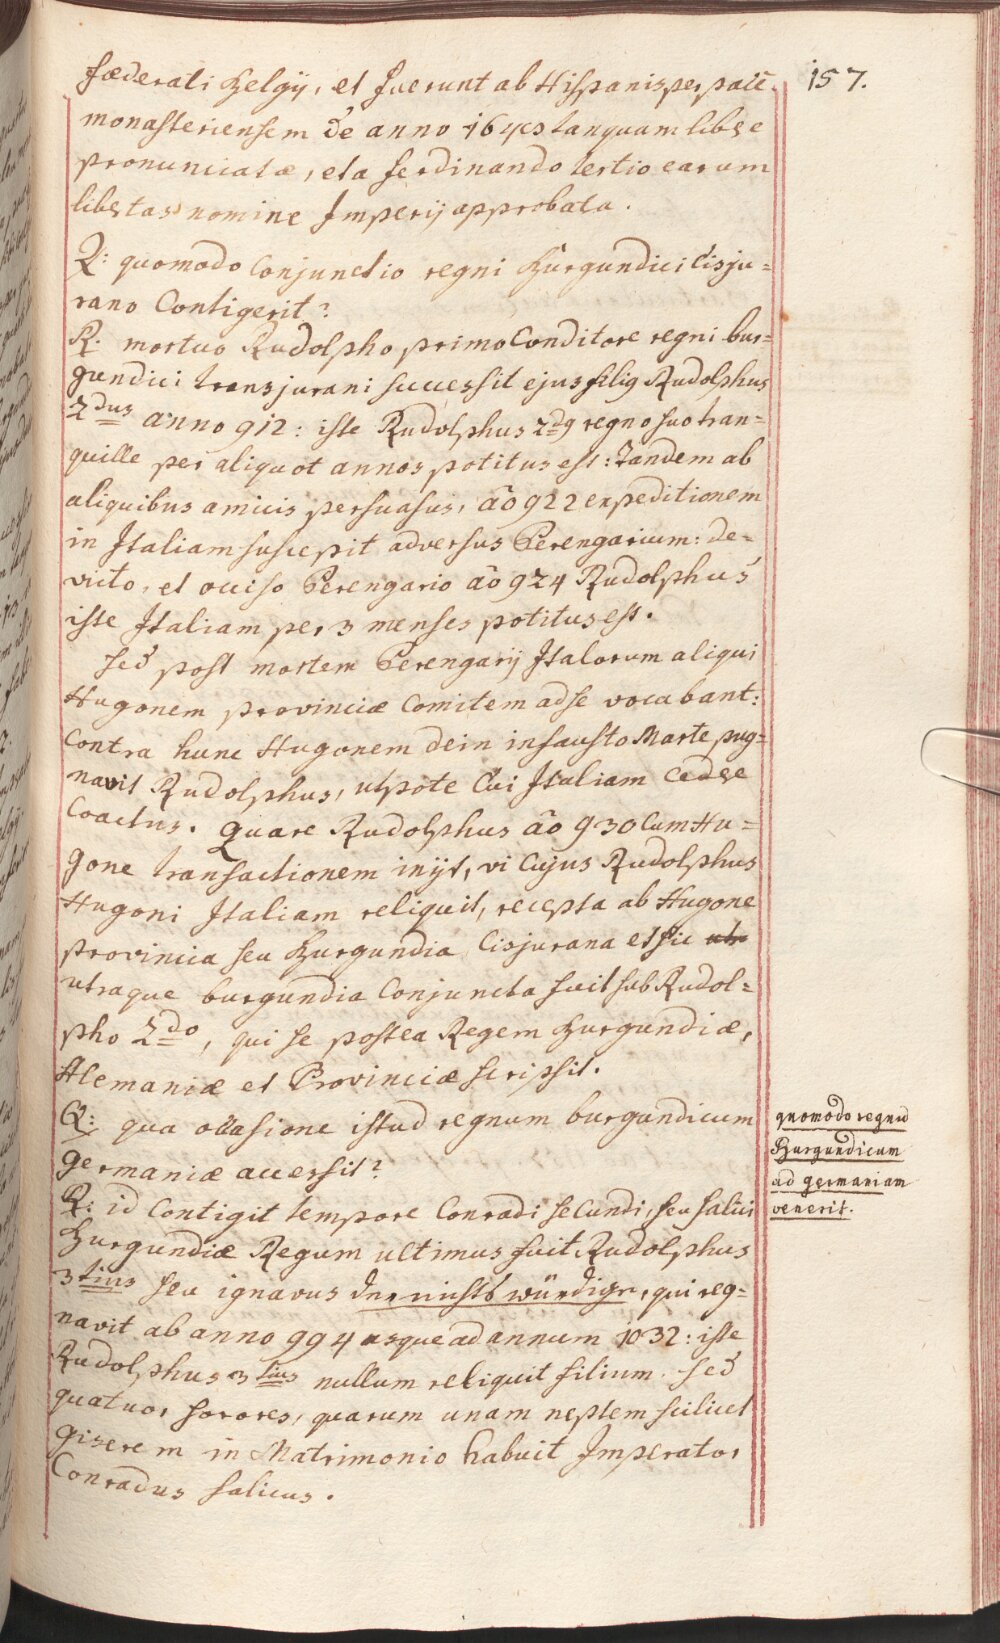 157.
fœderati Belgij, et fuerunt ab Hispanis per pacē
monasteriensem de anno 1648 tanquam libɇe
pronunciatæ, et a ferdinando tertio earum
libɇtas nomine Imperij approbata.
Q: quomodo Conjunctio regni Burgundici Cisju=
rano Contigerit?
R. mortuo Rudolpho primo Conditore regni bur=
gundici transjurani successit ejus filiꝰ Rudolphus
2dus anno 912: iste Rudolphus 2dꝰ regno suo tran=
quille per aliquot annos potitus est: Tandem ab
aliquibus amicis persuasus, aō 922 expeditionem
in Italiam suscepit adversus Berengarium: de=
victo, et occiso Berengario aō 924 Rudolphus
iste Italiam per 3 menses potitus est.
sed post mortem Berengarij Italorum aliqui
Hugonem provinciæ Comitem ad se vocabant:
Contra hunc Hugonem dein infausto Marte pug=
navit Rudolphus, utpote Cui Italiam Cedɇe
Coactus. Quare Rudolphus aō 930 Cum Hu=
gone transactionem inijt, vi Cujus Rudolphus
Hugoni Italiam reliquit, recepta ab Hugone
provincia seu Burgundia Cisjurana et sic utr
utraque burgundia Conjuncta fuit sub Rudol=
pho 2do, qui se postea Regem Burgundiæ,
Alemaniæ et Provinciæ scripsit.
Q: qua occasione istud regnum burgundicum
germaniæ accessit?
quomodo regnū
Burgundicum
ad germaniam
venerit.
R: id Contigit tempore Conradi seCundi, seu salici
Burgundiæ Regum ultimus fuit Rudolphus
3tius seu ignavus der nichts würdige, qui reg=
navit ab anno 994 usque ad annum 1032: iste
Rudolphus 3tius nullum reliquit filium. Sed
quatuor sorores, quarum unam neptem scilicet
giserem in Matrimonio habuit Imperator
Conradus salicus.